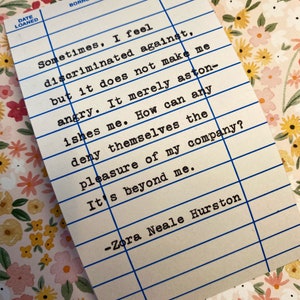 DATE
LOANED
Sometimes, I feel
discriminated against,
but it does not make me
angry. It merely aston-
ishes me. How can any
deny themselves the
pleasure of my company?
It's beyond me.
-Zora Neale Hurston